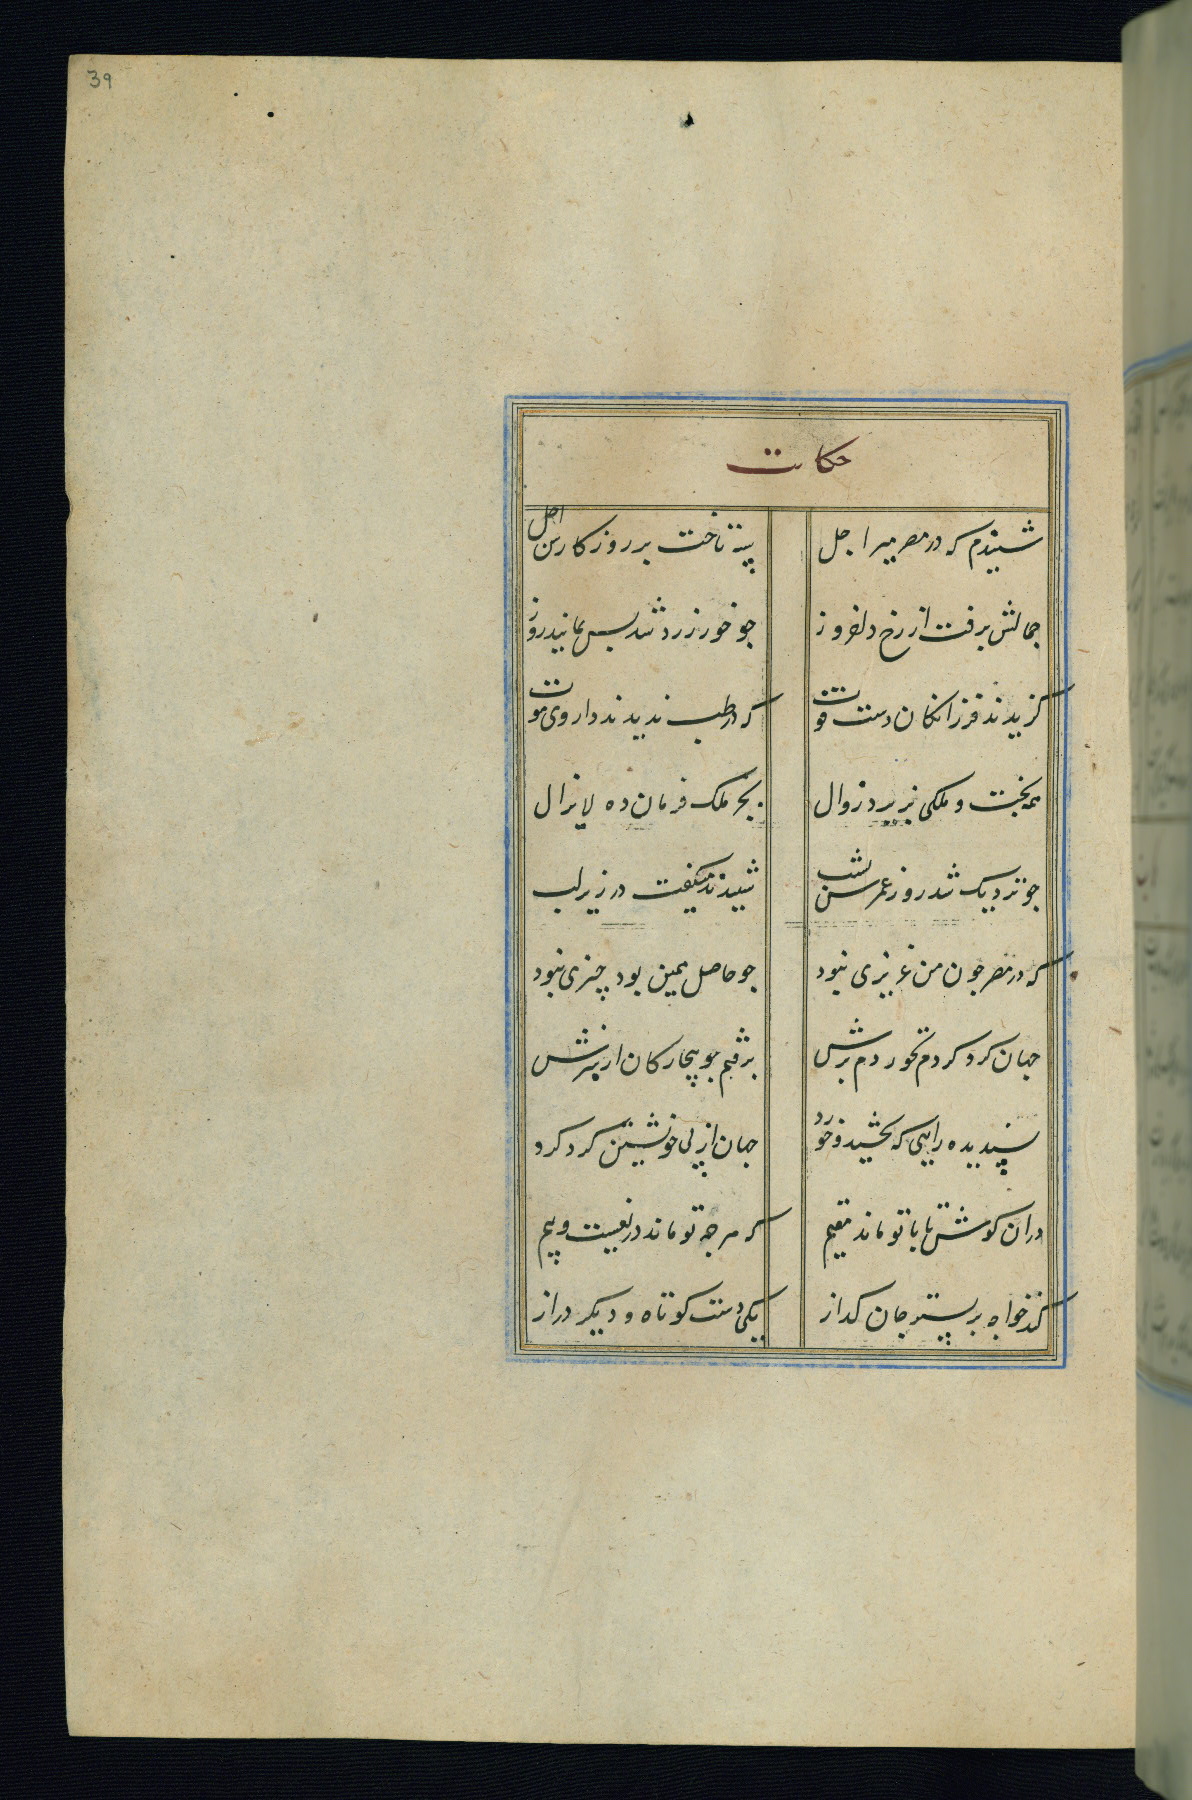 39
حکایت
شنیدم که در مصر میر اجل
سپه تاخت بر روزکارش اجل
جمالش برفت از رخ دلفروز
جو خور زرد شد بس نماند ز روز
کزیدند فرزانکان دست فوت
که در طب ندیدند داروی موت
همه تخت و ملکی پذیرد زوال
بجز ملک فرمان ده لایزال
جو نزدیک شد روز عمرش بشب
شنیدند میکفت در زیر لب
که در مصر جون من عزیزی نبود
جو حاصل همین بود چیزی نبود
جهان کرد کردم نخوردم برش
برفتم جو بیچارکان از سرش
پسندیده رایی که بخشید و خورد
جهان از پی خویشتن کرد کرد
در ان کوش تا با تو ماند مقیم
که هر جه از تو ماند دریغست و بیم
کند خواجه بر بستر جان کداز
یکی دست کوتاه و دیکر دراز